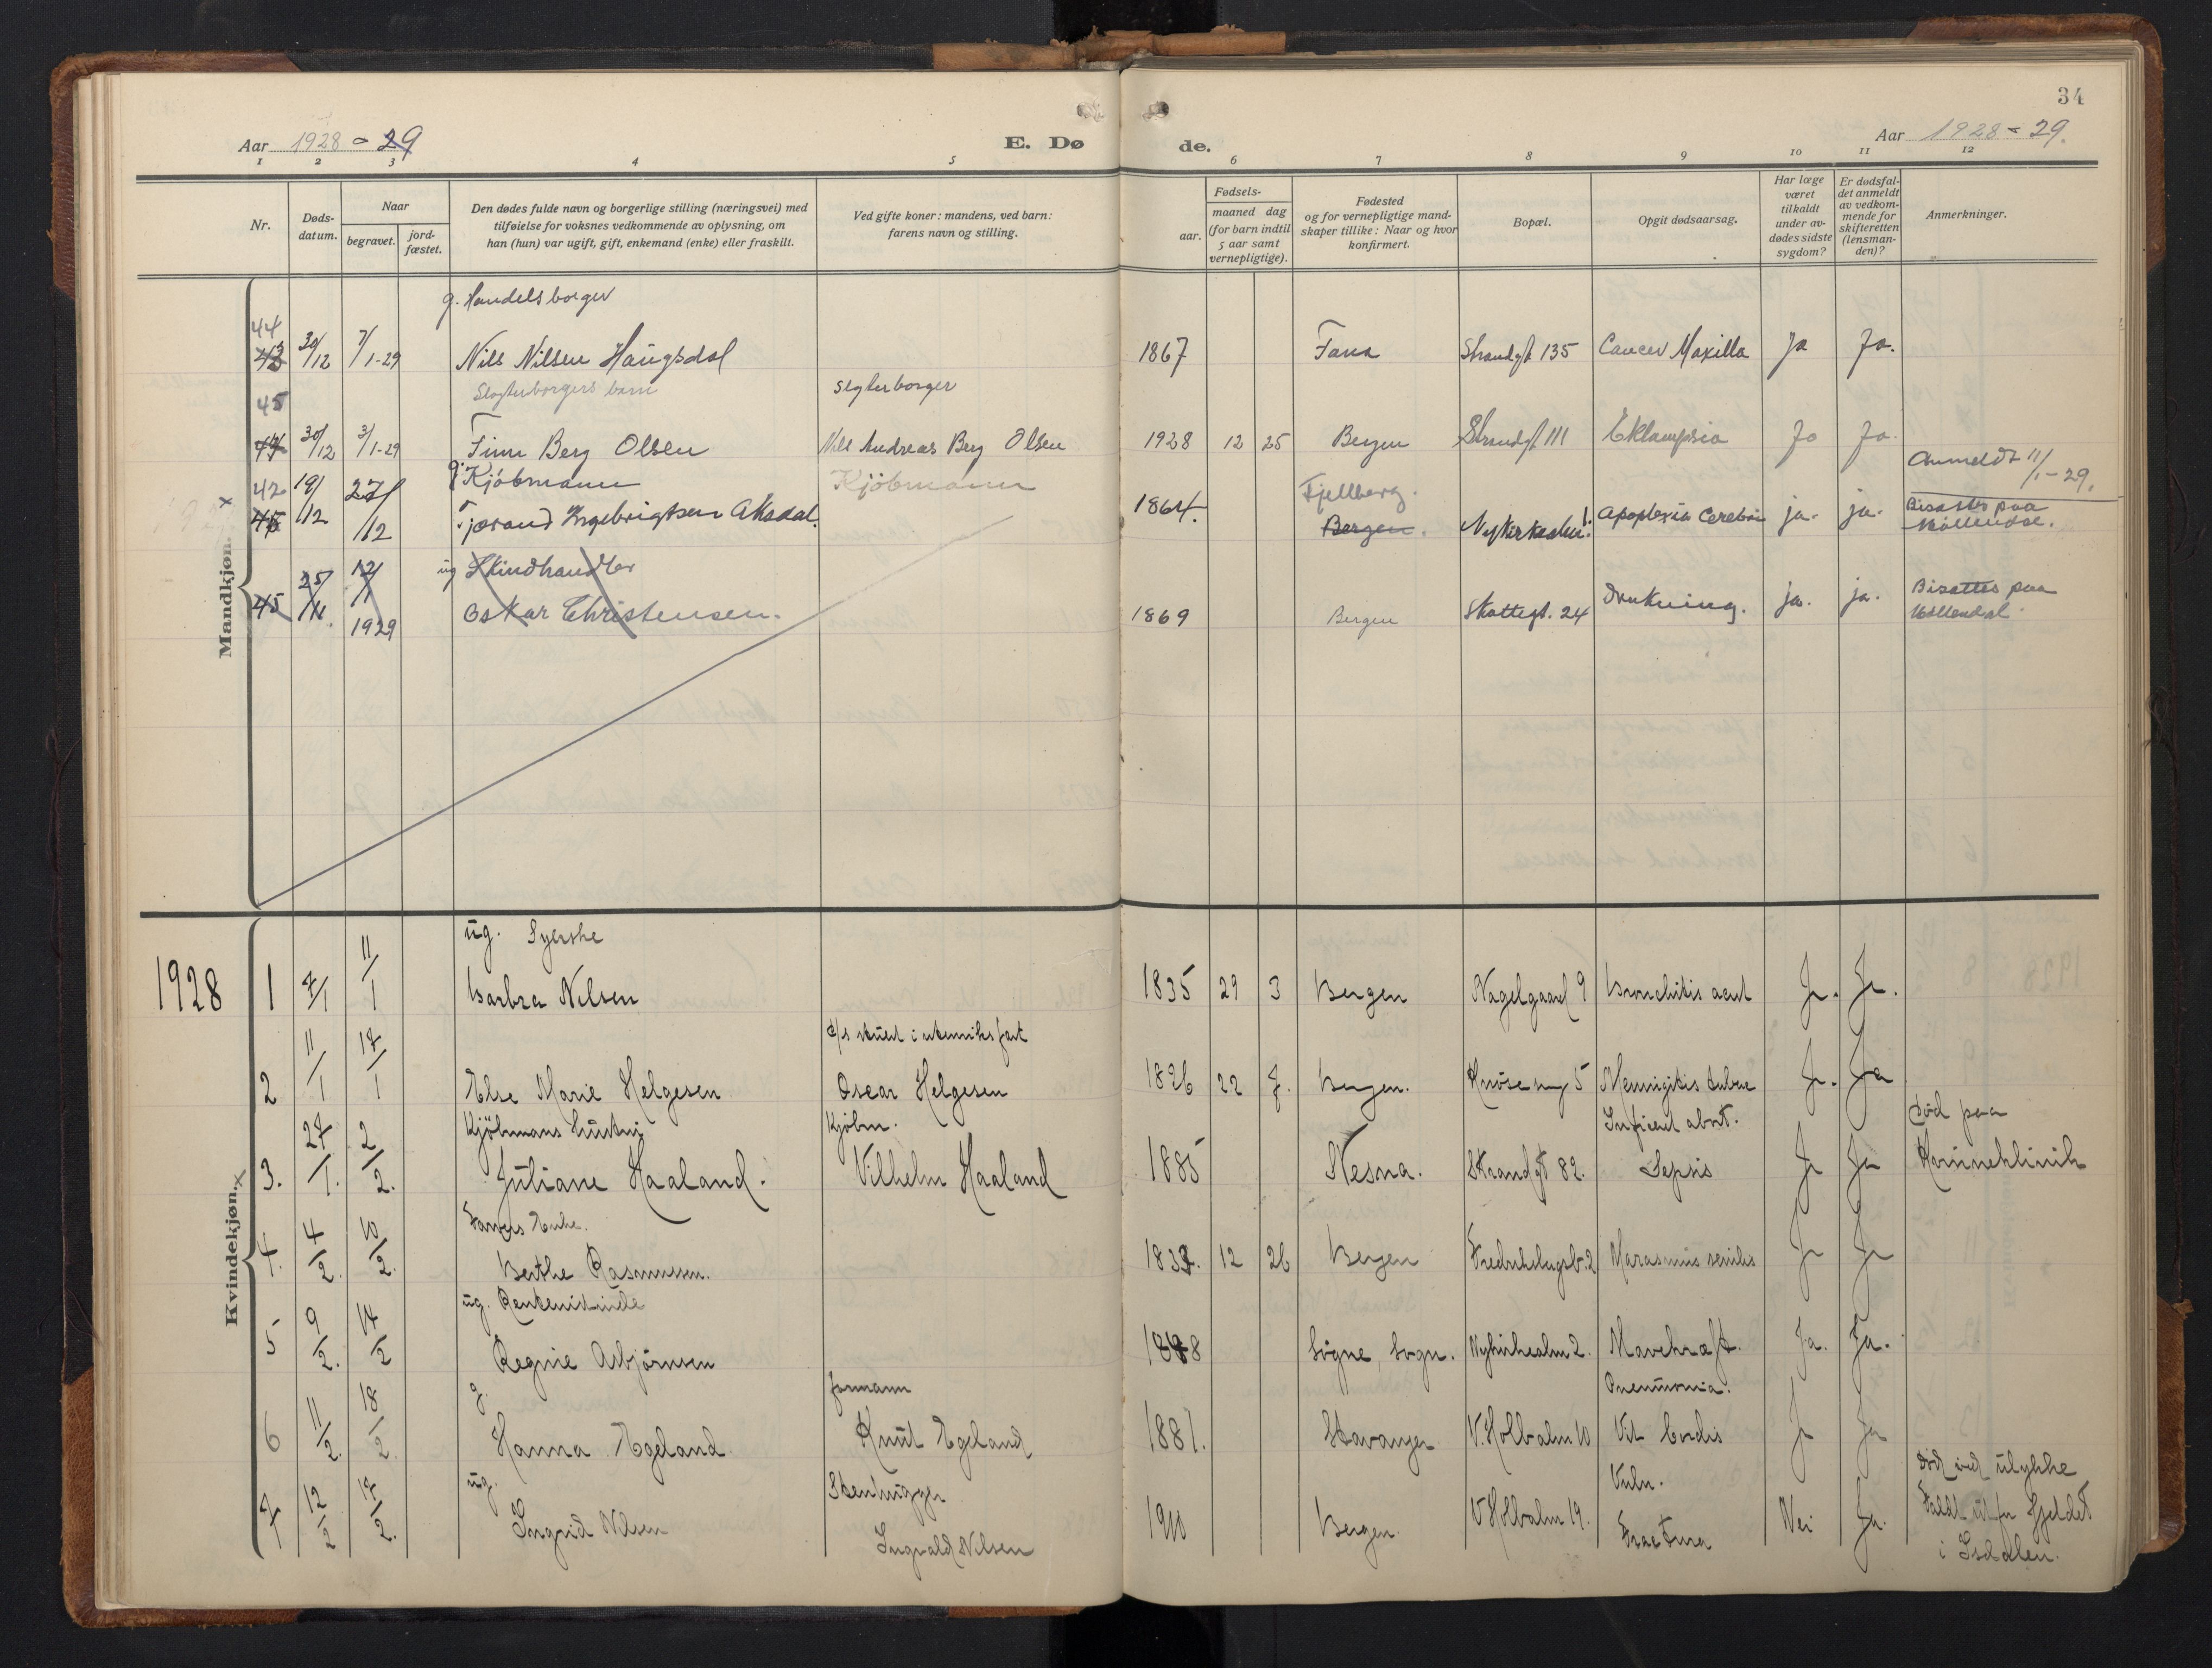 34
Aar 1928-29
E. Dø
de.
Aar 1928-29.
1 2 3 4 5 6 7 8 9 10 11 12
Nr.
Døds-
datum.
Naar
begravet.
jord-
fæstet.
Den dødes fulde navn og borgerlige stilling (næringsvei) med
tilføielse for voksnes vedkommende av oplysning, om
han (hun) var ugift, gift, enkemand (enke) eller fraskilt.
Ved gifte koner: mandens, ved barn:
farens navn og stilling.
Fødsels-
aar.
maaned dag
(for barn indtil
5 aar samt
vernepligtige).
Fødested
og for vernepligtige mand-
skaper tillike: Naar og hvor
konfirmert.
Bopæl.
Opgit dødsaarsag.
Har læge
været
tilkaldt
under av-
dødes sidste
sygdom?
Er dødsfal-
det anmeldt
av vedkom-
mende for
skifteretten
(lensman-
den)?
Anmerkninger.
Mandkjøn.
g. Handelsborger
44
43 30/12 7/1-29 Nils Nilsen Haugsdal 1867 Fana Strandgt 135 Cancer Maxilla Ja Ja.
45 Slagterborgers barn slgterborger
44 30/12 3/1-29 Finn Berg Olsen Nils Andreas Berg Olsen 1928 12 25 Bergen Strandgt 111 Eklampsia Ja Ja.
Anmeldt 11/1-29.
x 42 g. Kjöbmann Kjöbmann Fjellberg.
45 19/12 27/12 Tjerand Ingebrigtsen Aksdal. 1864. Bergen. Nykirkealm. 1. Apoplexia Cerebri ja. ja. Bisattes paa Möllendal.
ug Skindhandler
45 25/11. 12/1 1929 Oskar Christensen. 1869 Bergen Skottegt. 24 Drukning. ja. ja. Bisattes paa Möllendal.
1928
Kvindekjøn. x
ug. Syerske
1 7/1 11/1 Barbra Nilsen 1835 29 3 Bergen Nagelgaard 9 Bronchitis acut Ja. Ja.
d/s skuet i utenriksfart
2 11/1 17/1 Else Marie Helgesen Oscar Helgesen 1926 22 7. Bergen. Knösesmug 5 Menningitis tuberc Ja. Ja
Kjöbmans hustru Kjöbm. Inficiert abort. Död paa
3. 27/1. 2/2. Juliane Haaland. Vilhelm Haaland 1885 Nesna. Strandgt 82. Sepsis Ja Ja Kvinneklinik
Farvers Enke.
4. 4/2. 10/2. Berthe Rasmussen. 1837. 12 26 Bergen Fredriksbergsg. 2 Marasmus senilis Ja Ja
ug. Rentenistinde
5 9/2. 14/2 Regine Asbjörnsen 1848 Sogne, Sogn. Nykirkealm 2. Mavekræft. Ja. Ja.
g. formann Pneumonia.
6 11/2. 18/2. Hanna Egeland Knut Egeland 1881. Stavanger V. Holbalm 10 Vit Cordis Ja Ja
ug. Stenhugger Vuln. Död ved ulykke
7 12/2 17/2. Ingrid Nilsen Ingvald Nilsen 1910 Bergen V Holbalm 19. Fractura Nei Ja. Faldt ut fra fjeldet
i Isdalen.